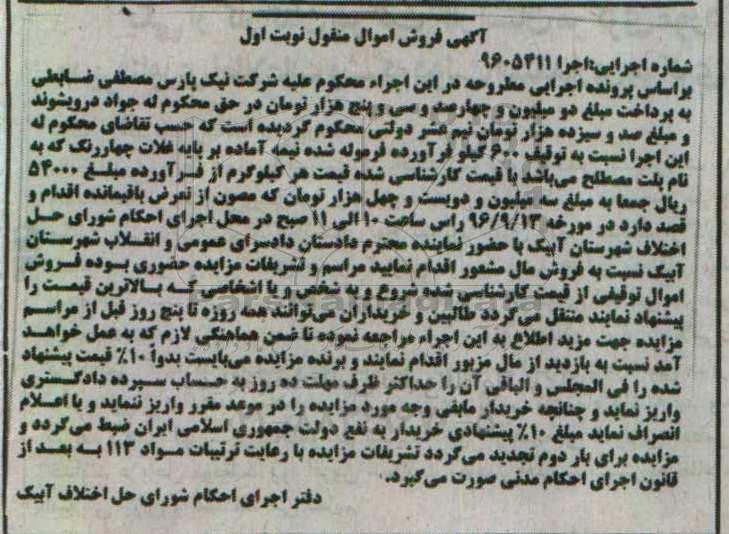 آگهی فروش اموال منقول نوبت اول
شماره اجرایی:اجرا ۹۶۰۵۴۱۱
براساس پرونده اجرایی مطروحه در این اجراء محکوم علیه شرکت نیک پارس مصطفی ضابطی
به پرداخت مبلغ دو میلیون و چهارصد و سی و پنج هزار تومان در حق محکوم له جواد درویشوند
و مبلغ صد و سیزده هزار تومان نیم عشر دولتی محکوم گردیده است که حسب تقاضای محکوم له
این اجرا نسبت به توقیف ۶۰۰ کیلو فرآورده فرموله شده نیمه آماده بر پایه غلات چهاررنگ که به
نام پلت مصطلح می‌باشد با قیمت کارشناسی شده قیمت هر کیلوگرم از فرآورده مبلغ ۵۴۰۰۰
ریال جمعا به مبلغ سه میلیون و دویست و چهل هزار تومان که مصون از تعرض باقیمانده اقدام و
قصد دارد در مورخه ۹۶/۹/۱۳ راس ساعت ۱۰ الی ۱۱ صبح در محل اجرای احکام شورای حل
اختلاف شهرستان آبیک با حضور نماینده محترم دادستان دادسرای عمومی و انقلاب شهرستان
آبیک نسبت به فروش مال مشعور اقدام نمایید مراسم و تشریفات مزایده حضوری بوده فروش
اموال توقیفی از قیمت کارشناسی شده شروع و به شخص و یا اشخاصی که بالاترین قیمت را
پیشنهاد نمایند منتقل می‌گردد طالبین و خریداران می‌توانند همه روزه تا پنج روز قبل از مراسم
مزایده جهت مزید اطلاع به این اجراء مراجعه نموده تا ضمن هماهنگی لازم که به عمل خواهد
آمد نسبت به بازدید از مال مزبور اقدام نمایند و برنده مزایده می‌بایست بدوا ۱۰٪ قیمت پیشنهاد
شده را فی المجلس و الباقی آن را حداکثر ظرف مهلت ده روز به حساب سپرده دادگستری
واریز نماید و چنانچه خریدار مابقی وجه مورد مزایده را در موعد مقرر واریز ننماید و یا اعلام
انصراف نماید مبلغ ۱۰٪ پیشنهادی خریدار به نفع دولت جمهوری اسلامی ایران ضبط می‌گردد و
مزایده برای بار دوم تجدید می‌گردد تشریفات مزایده با رعایت ترتیبات مواد ۱۱۳ به بعد از
قانون اجرای احکام مدنی صورت می‌گیرد.
دفتر اجرای احکام شورای حل اختلاف آبیک